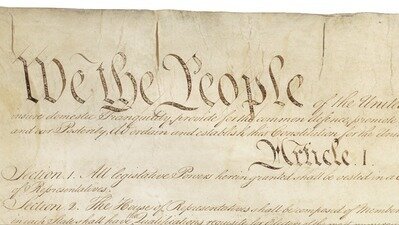 We the People of the United
insure domestic Tranquility, provide for the common defence, promote
and our Posterity, do ordain and establish this Constitution for the United
Article. I.
Section. 1. All legislative Powers herein granted shall be vested in a
of Representatives.
Section. 2. The House of Representatives shall be composed of Members
in each State shall have Qualifications requisite for Electors of the most numerous